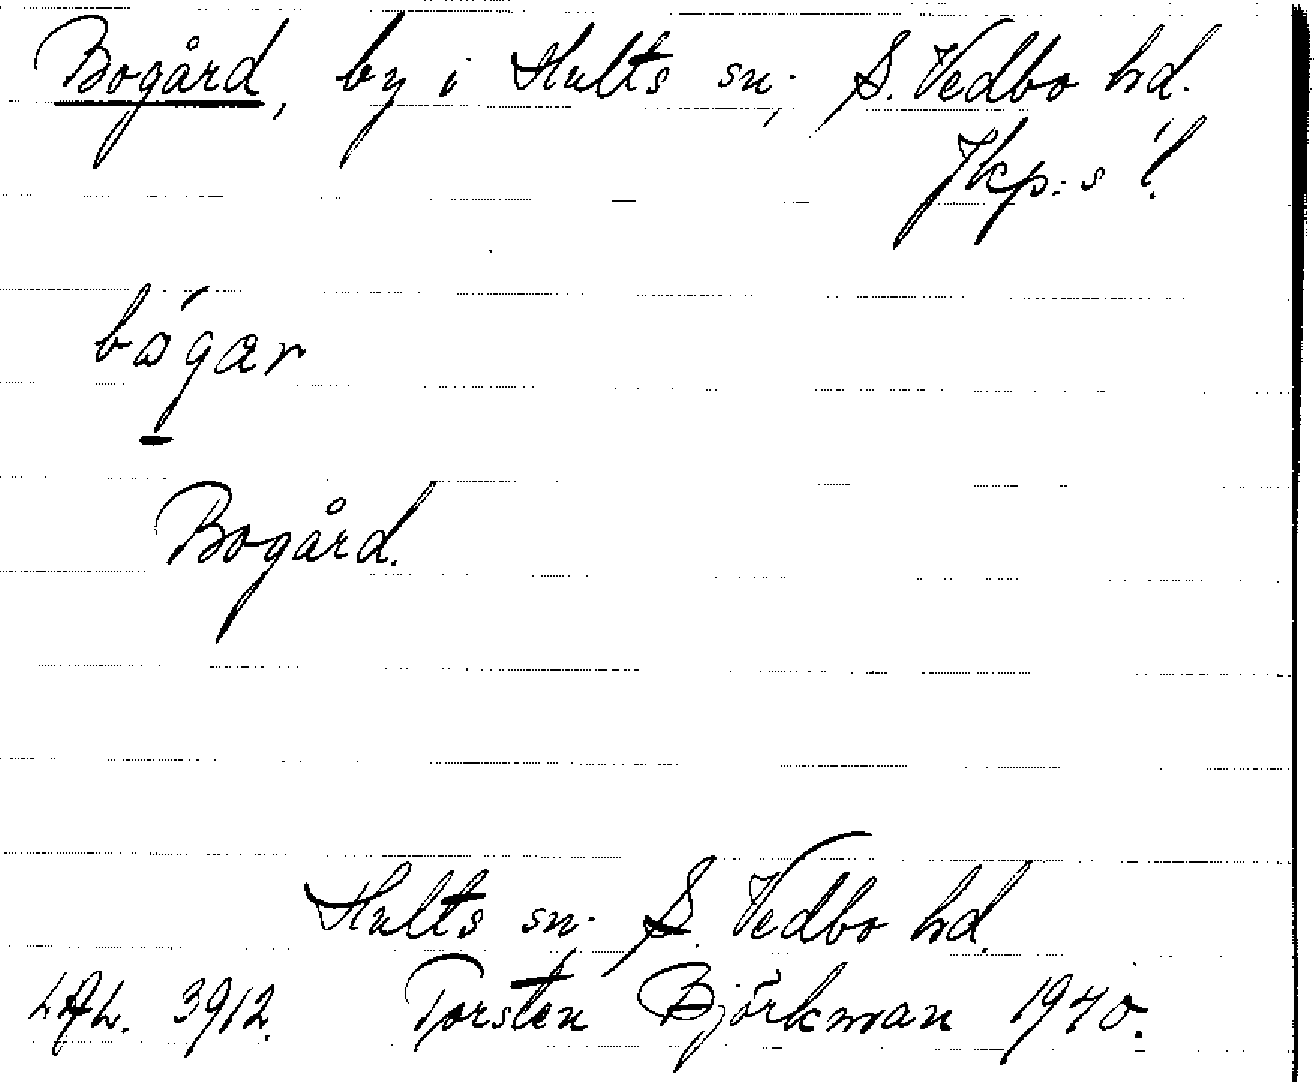 Bogård, by i Hults sn, S. Vedbo hd.
Jkp:s l.
bógar
Bogård.
Hults sn. S. Vedbo hd.
3912. Torsten Björkman 1940.